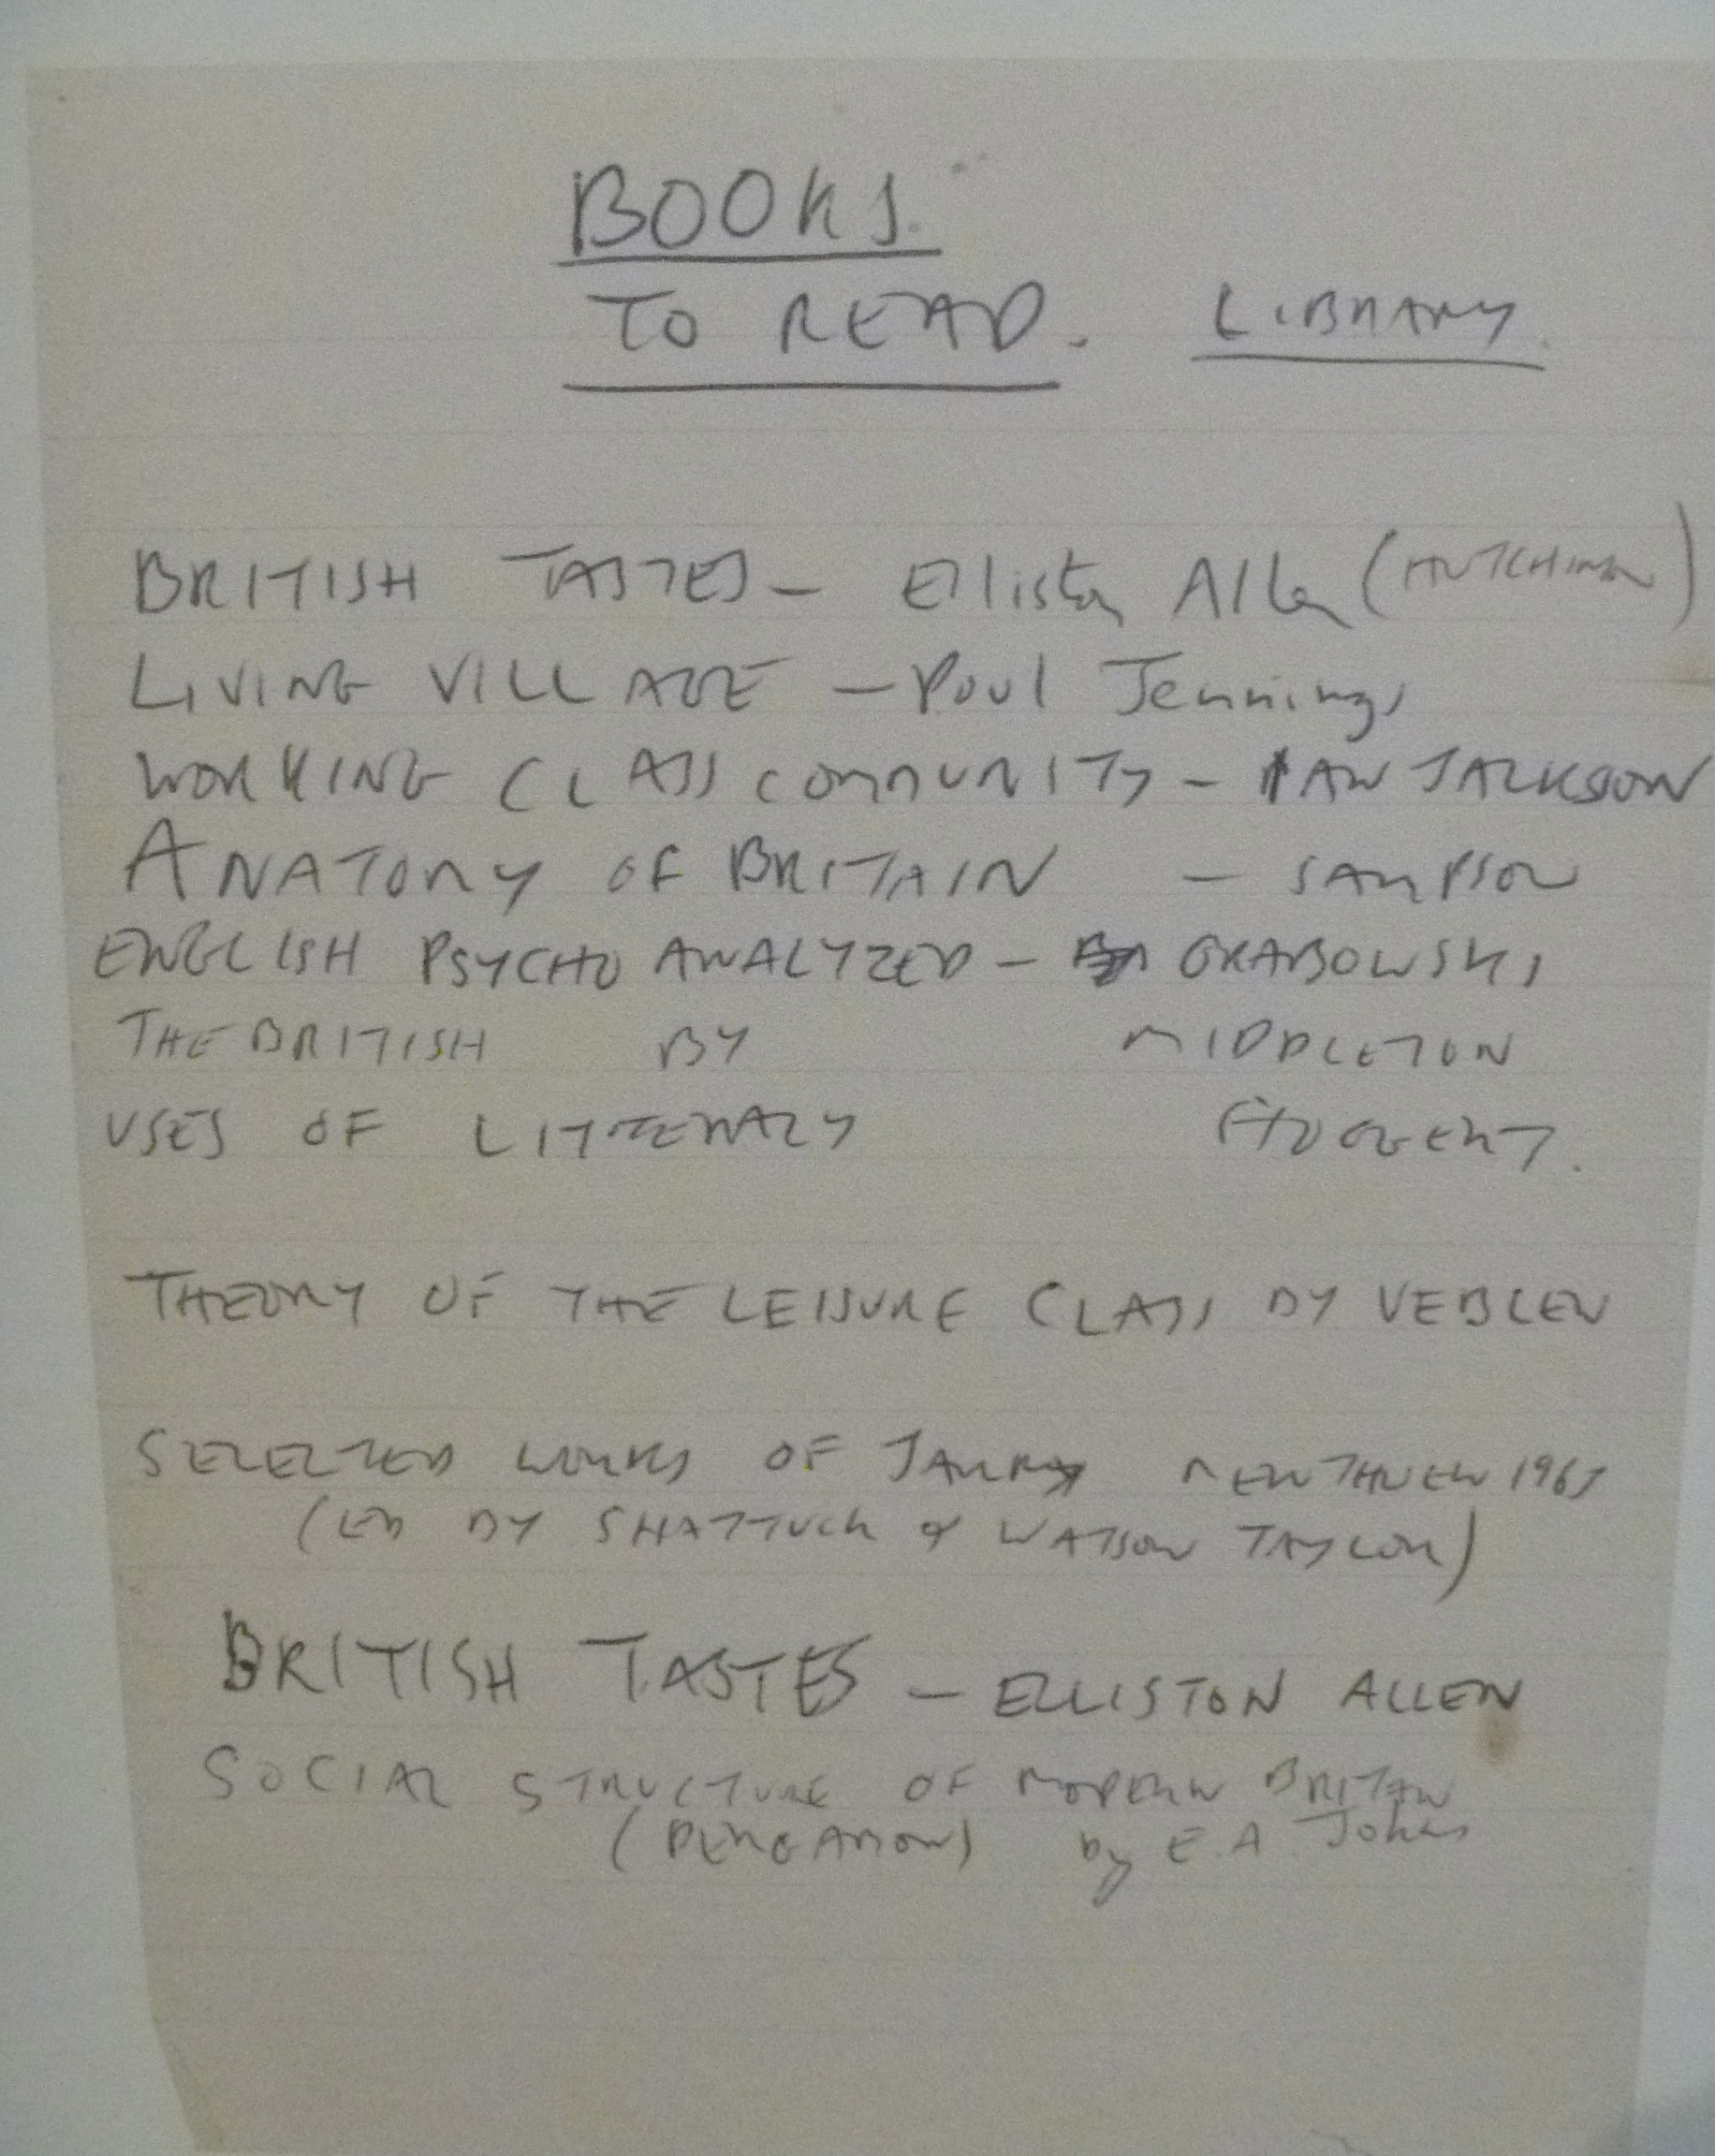 BOOKS.
TO READ. LIBRARY.
BRITISH TASTES - Elliston Allen (HUTCHINSON)
LIVING VILLAGE - Paul Jennings
WORKING CLASS COMMUNITY - JACKSON
ANATOMY OF BRITAIN - SAMPSON
ENGLISH PSYCHO ANALYZED - GRABOWSKI
THE BRITISH BY MIDDLETON
USES OF LITTERACY HOGGERT.
THEORY OF THE LEISURE CLASS BY VEBLEN
SELECTED WORKS OF JARRY METHUEN 1965
(ED BY SHATTUCK & WATSON TAYLOR)
BRITISH TASTES - ELLISTON ALLEN
SOCIAL STRUCTURE OF MODERN BRITAIN
(PERGAMON) by E.A. Johns